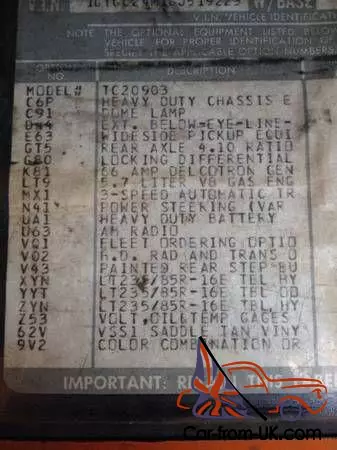 V.I.N. W/BASE
V.I.N. VEHICLE IDENTIFICAT
NOTE THE OPTIONAL EQUIPMENT LISTED BELOW
VEHICLE FOR PROPER IDENTIFICATION
SPECIFY THE APPLICABLE OPTION NUMBERS.
NO. DESCRIPTION
MODEL# TC20903
C6P HEAVY DUTY CHASSIS E
C91 DOME LAMP
D44 EXT. BELOW-EYE-LINE-
E63 WIDESIDE PICKUP EQUI
GT5 REAR AXLE 4.10 RATIO
G80 LOCKING DIFFERENTIAL
K81 66 AMP DELCOTRON GEN
LT9 5.7 LITER V8 GAS ENG
MX1 3-SPEED AUTOMATIC TR
N41 POWER STEERING (VAR
UA1 HEAVY DUTY BATTERY
U63 AM RADIO
VQ1 FLEET ORDERING OPTIO
V02 H.D. RAD AND TRANS O
V43 PAINTED REAR STEP BU
XYN LT235/85R-16E TBL HY
YYT LT235/85R-16E TBL OO
ZYN LT235/85R-16E TBL HY
Z53 VOLT,OIL&TEMP GAGES
62V VSS1 SADDLE TAN VINY
9V2 COLOR COMBINATION OR
IMPORTANT: THIS
Car-from-UK.com